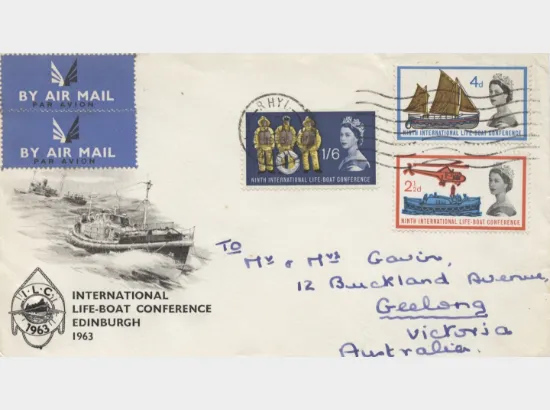 BY AIR MAIL
PAR AVION
BY AIR MAIL
PAR AVION
RHYL
1/6
NINTH INTERNATIONAL LIFE-BOAT CONFERENCE
4d
NINTH INTERNATIONAL LIFE-BOAT CONFERENCE
2½d
NINTH INTERNATIONAL LIFE-BOAT CONFERENCE
I.L.C.
1963
INTERNATIONAL
LIFE-BOAT CONFERENCE
EDINBURGH
1963
To
Mr & Mrs Gavin,
12 Buckland Avenue,
Geelong
Victoria
Australia.